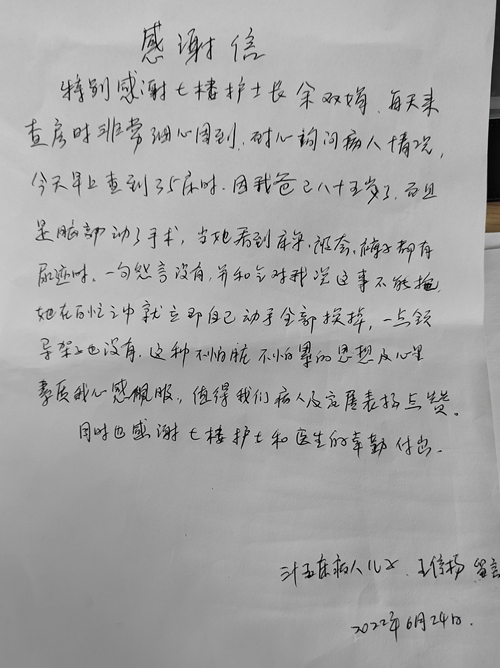 感谢信
特别感谢七楼护士长余双娟，每天来
查房时非常细心周到，耐心询问病人情况，
今天早上查到35床时，因我爸已八十五岁了，而且
是脑部动了手术，当她看到床单、被套、裤子都有
尿迹时，一句怨言没有，并和气对我说这事不能拖，
她在百忙之中就立即自己动手全部换掉，一点领
导架子也没有，这种不怕脏不怕累的思想及心里
素质我心感佩服，值得我们病人及家属表扬点赞。
同时也感谢七楼护士和医生的辛勤付出。
卅五床病人儿子 王 杨 留言
2022年6月24日.